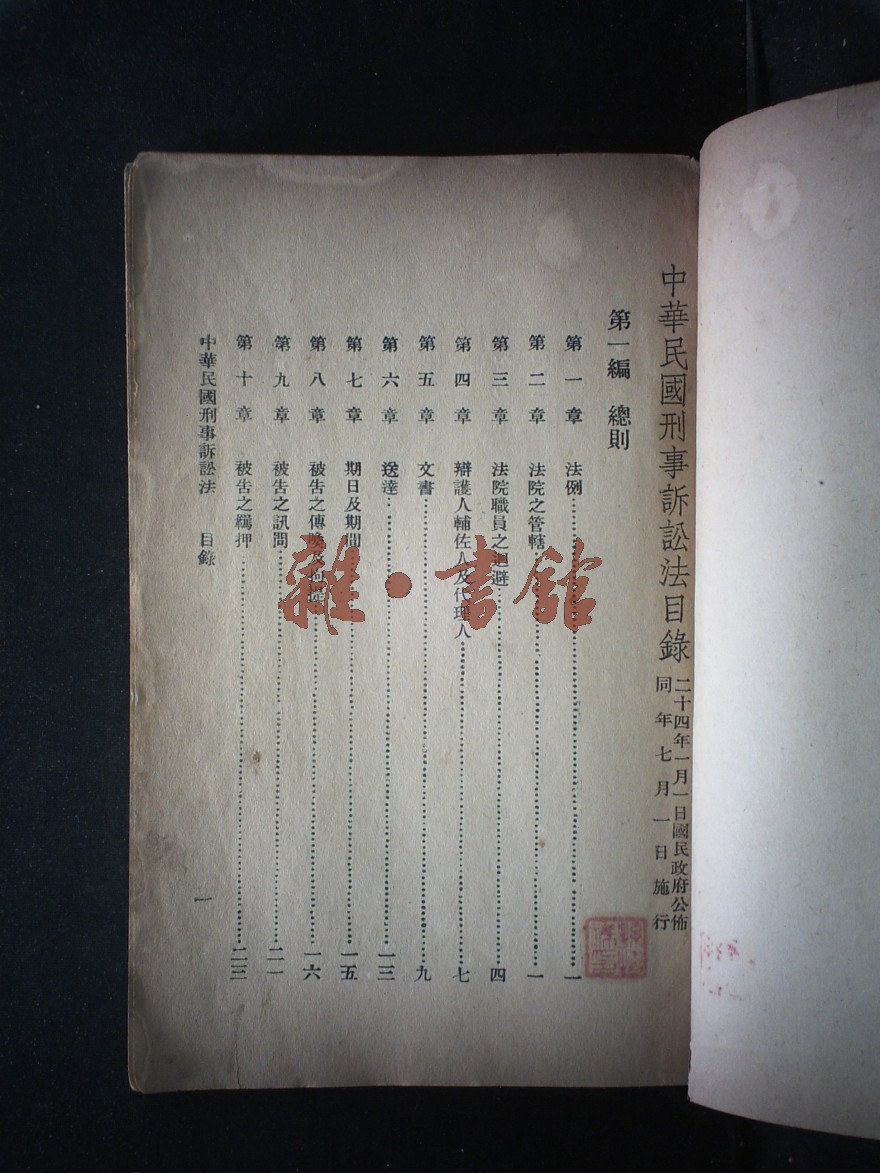 中華民國刑事訴訟法目錄
二十四年一月一日國民政府公佈
同年七月一日施行
第一編 總則
第一章 法例 一
第二章 法院之管轄 一
第三章 法院職員之迴避 四
第四章 辯護人輔佐人及代理人 七
第五章 文書 九
第六章 送達 一三
第七章 期日及期間 一五
第八章 被告之傳喚及拘提 一六
第九章 被告之訊問 二一
第十章 被告之羈押 二三
中華民國刑事訴訟法 目錄
一
雜·書館